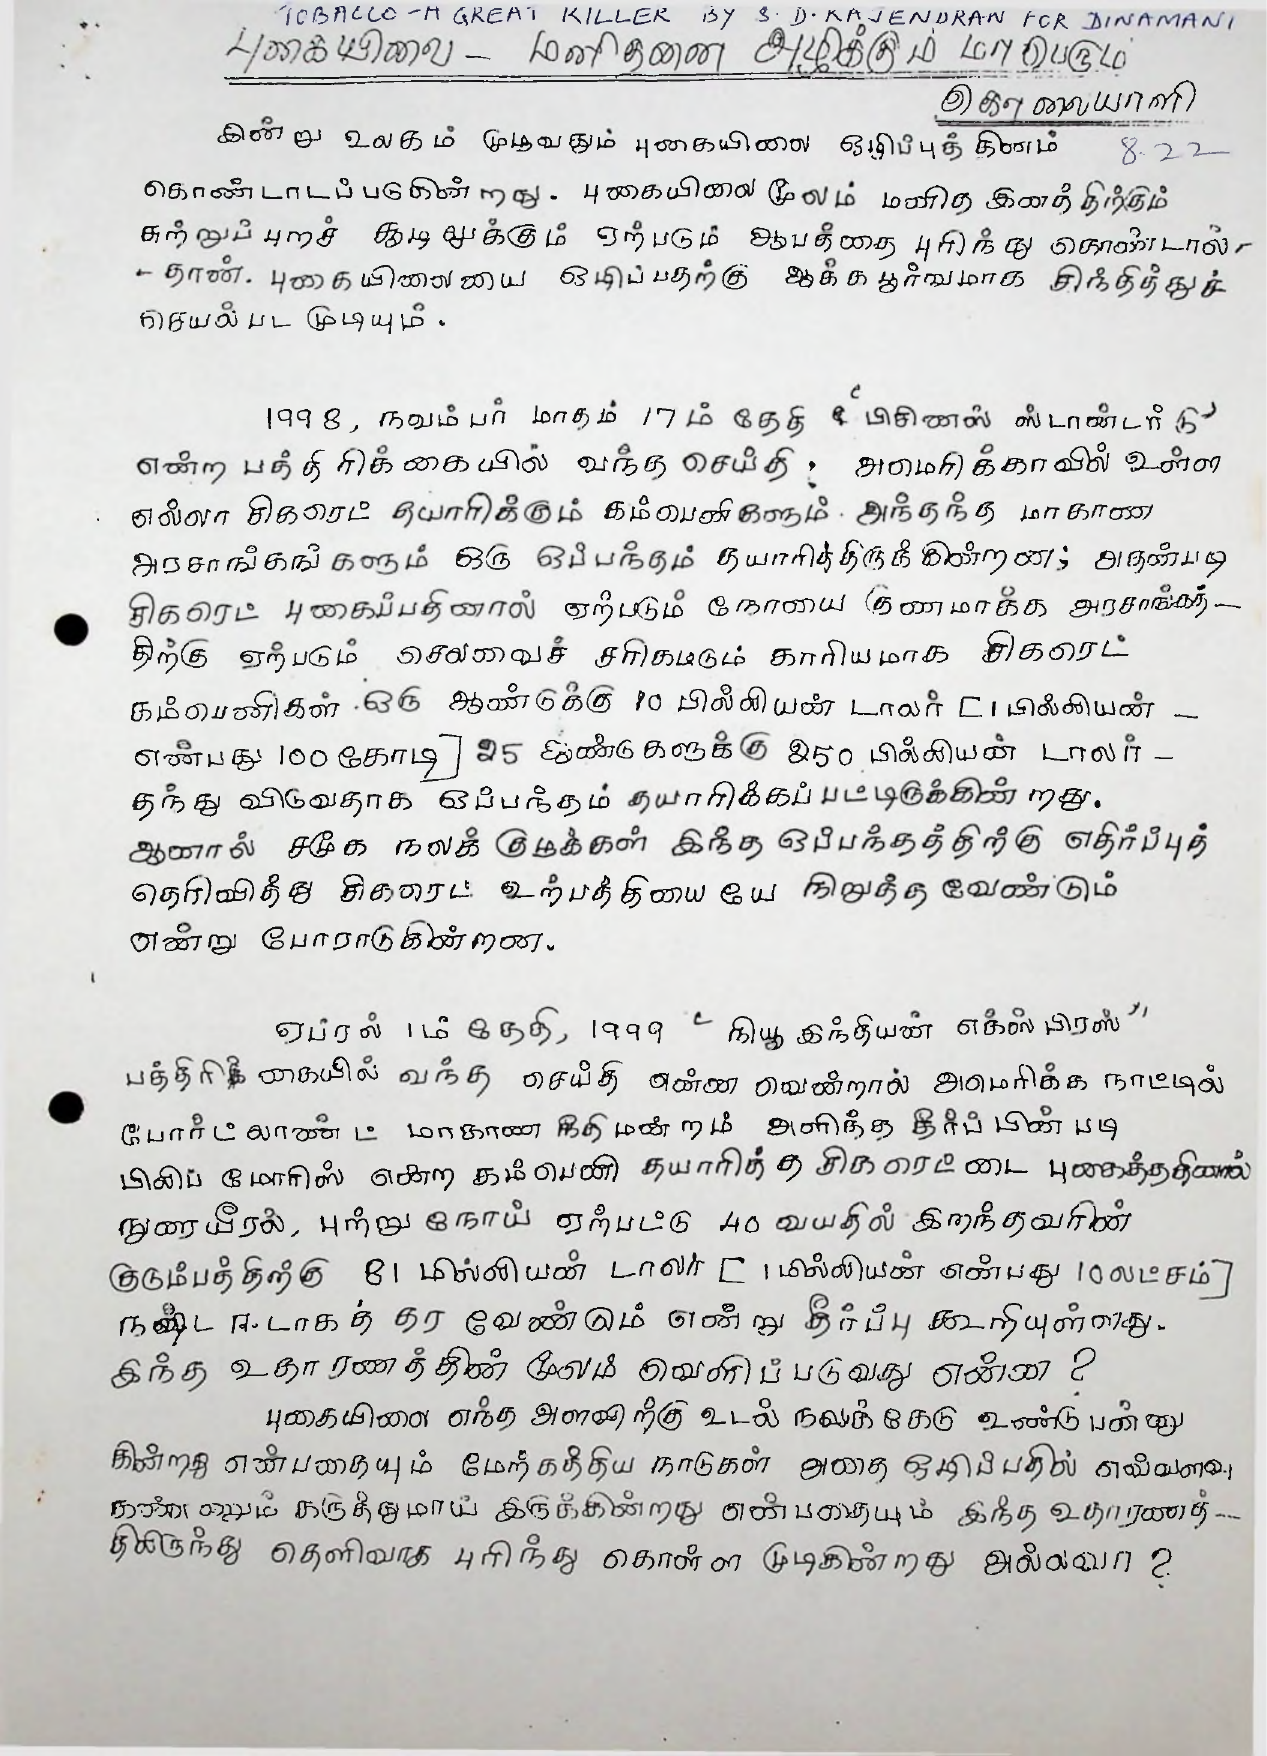 TOBACCO - A GREAT KILLER BY S. D. RAJENDRAN FOR DINAMANI
புகையிலை - மனிதனை அழிக்கும் மாபெரும்
கொலையாளி
இன்று உலகம் முழுவதும் புகையிலை ஒழிப்புத் தினம் 8.22
கொண்டாடப்படுகின்றது. புகையிலை மூலம் மனித இனத்திற்கும்
சுற்றுப்புறச் சூழலுக்கும் ஏற்படும் ஆபத்தை புரிந்து கொண்டால் -
- தான். புகையிலையை ஒழிப்பதற்கு ஆக்கபூர்வமாக சிந்தித்துச்
செயல்பட முடியும்.
1998, நவம்பர் மாதம் 17ம் தேதி 'பிசினஸ் ஸ்டாண்டர்டு'
என்ற பத்திரிக்கையில் வந்த செய்தி; அமெரிக்காவில் உள்ள
எல்லா சிகரெட் தயாரிக்கும் கம்பெனிகளும் அந்தந்த மாகாண
அரசாங்கங்களும் ஒரு ஒப்பந்தம் தயாரித்திருக்கின்றன; அதன்படி
சிகரெட் புகைப்பதினால் ஏற்படும் நோயை குணமாக்க அரசாங்கத் -
திற்கு ஏற்படும் செலவைச் சரிகட்டும் காரியமாக சிகரெட்
கம்பெனிகள் ஒரு ஆண்டுக்கு 10 பில்லியன் டாலர் [1 பில்லியன் -
என்பது 100 கோடி] 25 ஆண்டுகளுக்கு 250 பில்லியன் டாலர் -
தந்து விடுவதாக ஒப்பந்தம் தயாரிக்கப்பட்டிருக்கின்றது.
ஆனால் சமூக நலக் குழுக்கள் இந்த ஒப்பந்தத்திற்கு எதிர்ப்புத்
தெரிவித்து சிகரெட் உற்பத்தியையே நிறுத்த வேண்டும்
என்று போராடுகின்றன.
ஏப்ரல் 1ம் தேதி, 1999 "நியூ இந்தியன் எக்ஸ்பிரஸ்"
பத்திரிக்கையில் வந்த செய்தி என்ன வென்றால் அமெரிக்க நாட்டில்
போர்ட்லாண்ட் மாகாண நீதிமன்றம் அளித்த தீர்ப்பின்படி
பிலிப் மோரிஸ் என்ற கம்பெனி தயாரித்த சிகரெட்டை புகைத்ததினால்
நுரையீரல், புற்று நோய் ஏற்பட்டு 40 வயதில் இறந்தவரின்
குடும்பத்திற்கு 81 மில்லியன் டாலர் [1 மில்லியன் என்பது 10 லட்சம்]
நஷ்ட ஈடாகத் தர வேண்டும் என்று தீர்ப்பு கூறியுள்ளது.
இந்த உதாரணத்தின் மூலம் வெளிப்படுவது என்ன?
புகையிலை எந்த அளவிற்கு உடல் நலக்கேடு உண்டு பண்ணு
கின்றது என்பதையும் மேற்கத்திய நாடுகள் அதை ஒழிப்பதில் எவ்வளவு
கண்ணும் கருத்துமாய் இருக்கின்றது என்பதையும் இந்த உதாரணத் -
திலிருந்து தெளிவாக புரிந்து கொள்ள முடிகின்றது அல்லவா?